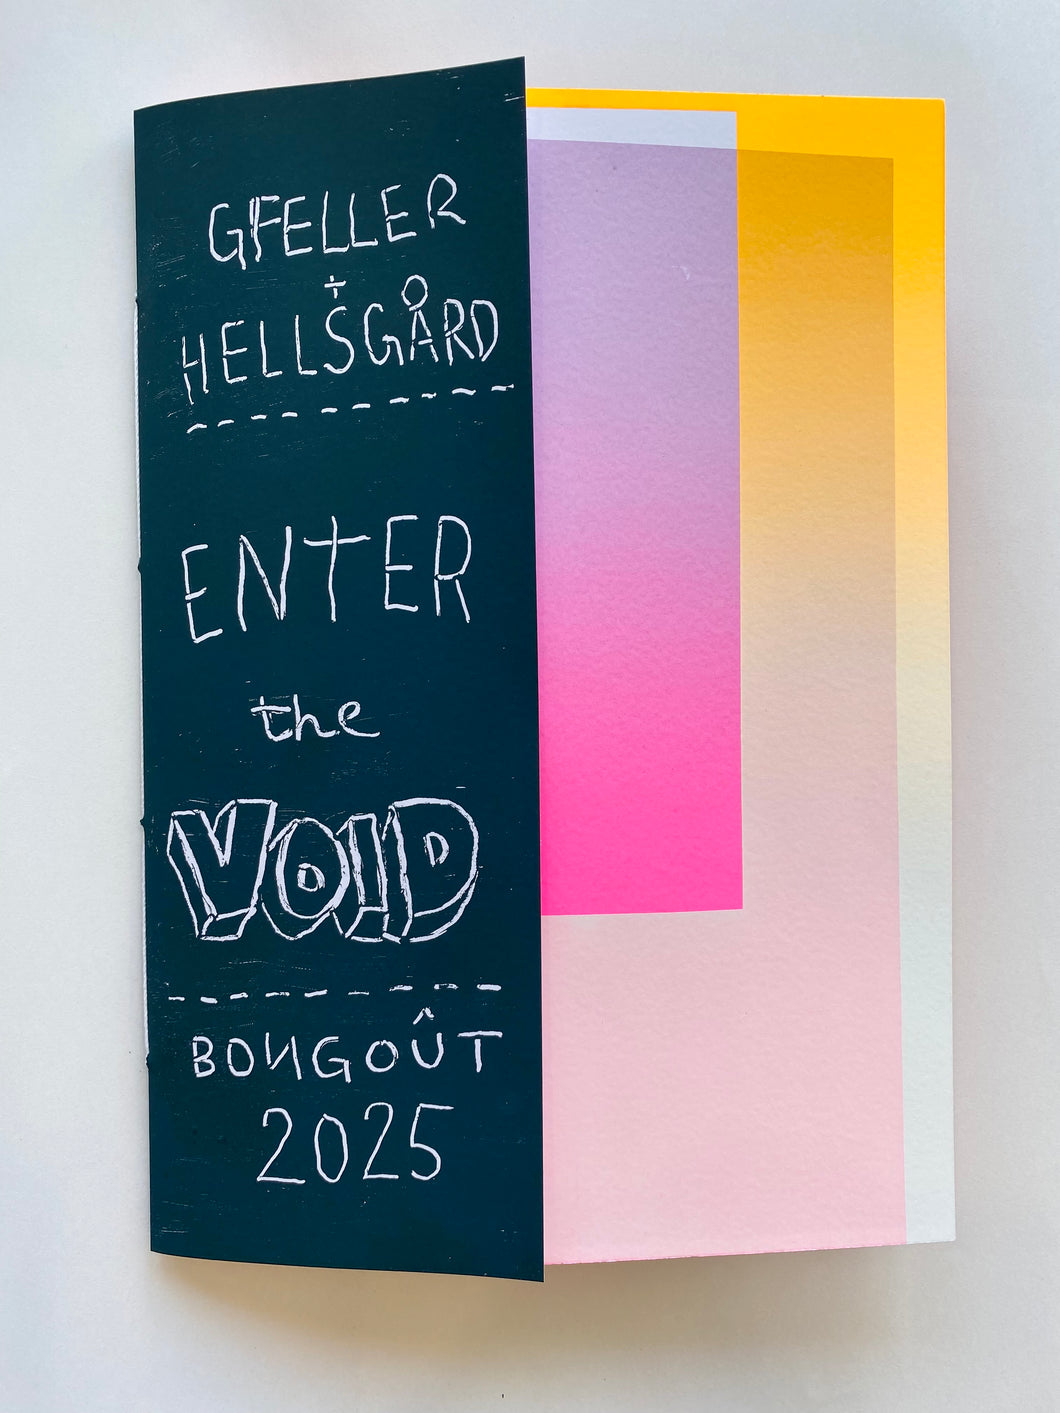 GFELLER
+
HELLSGÅRD
ENTER
the
VOID
BONGOÛT
2025